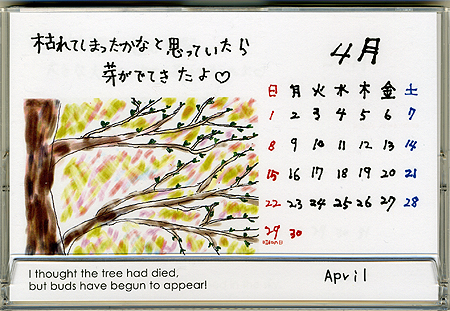 枯れてしまったかなと思っていたら
芽がでてきたよ♡
4月
日 月 火 水 木 金 土
1 2 3 4 5 6 7
8 9 10 11 12 13 14
15 16 17 18 19 20 21
22 23 24 25 26 27 28
29 30
I thought the tree had died,
but buds have begun to appear!
April